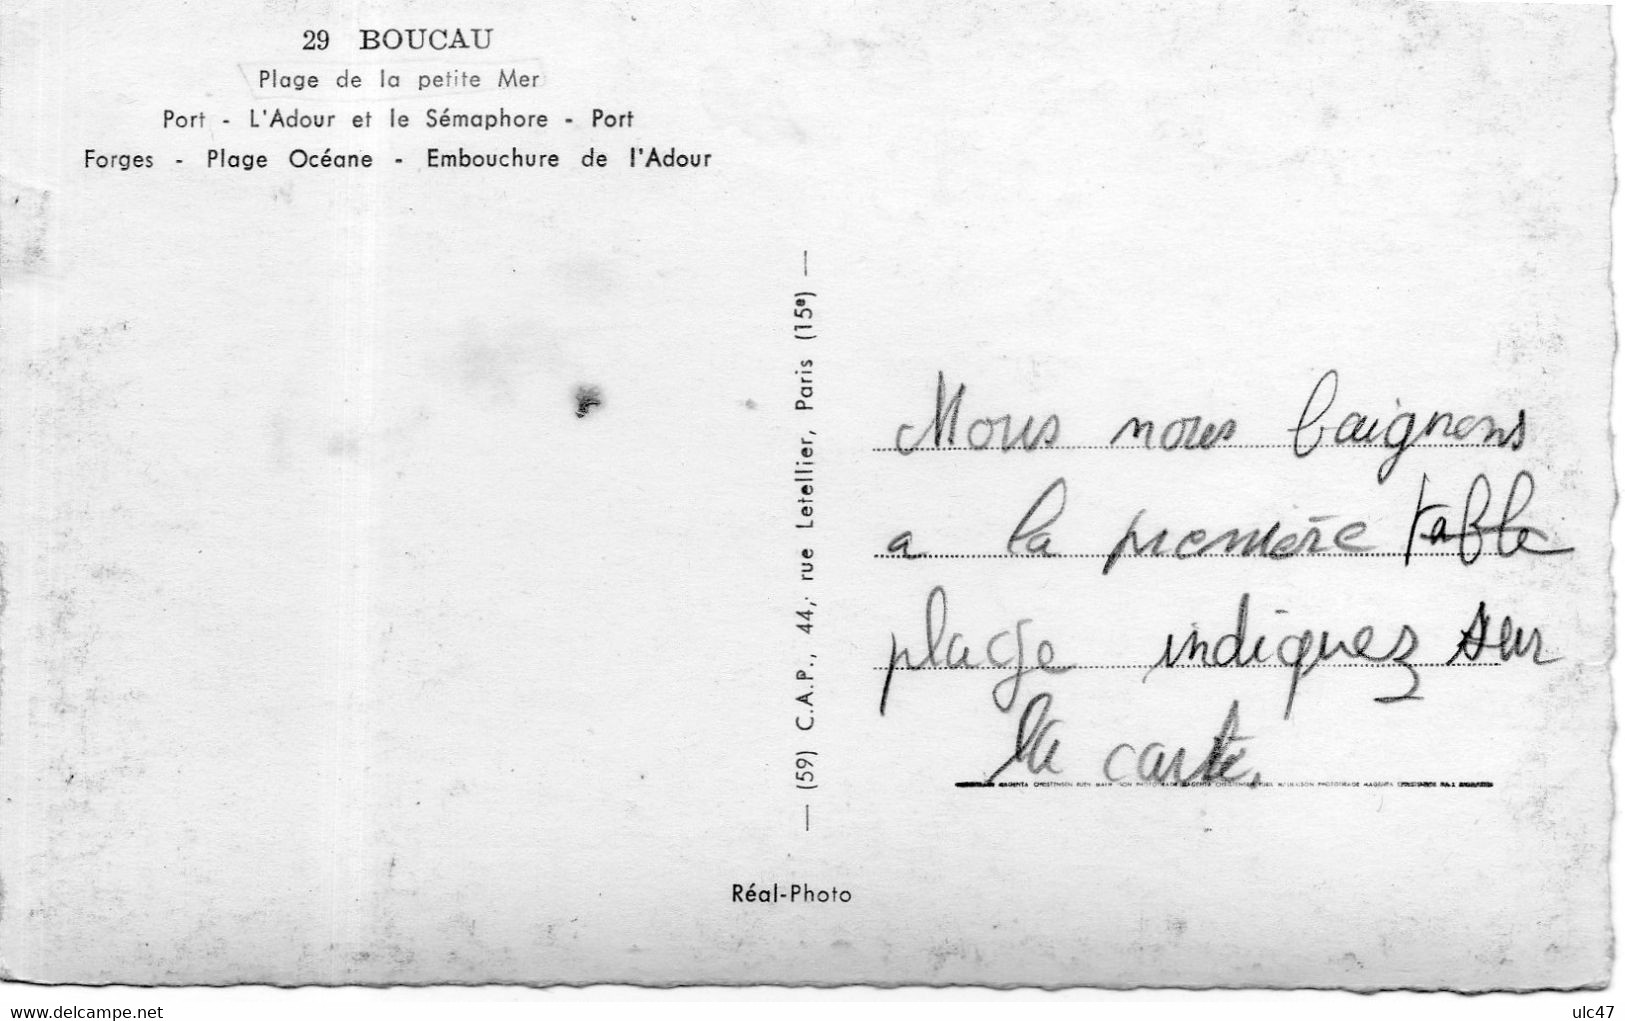 29 BOUCAU
Plage de la petite Mer
Port - L'Adour et le Sémaphore - Port
Forges - Plage Océane - Embouchure de l'Adour
— (59) C.A.P., 44, rue Letellier, Paris (15e) —
Nous nous baignons
a la première table
plage indiquez sur
la carte.
Réal-Photo
www.delcampe.net
ulc47